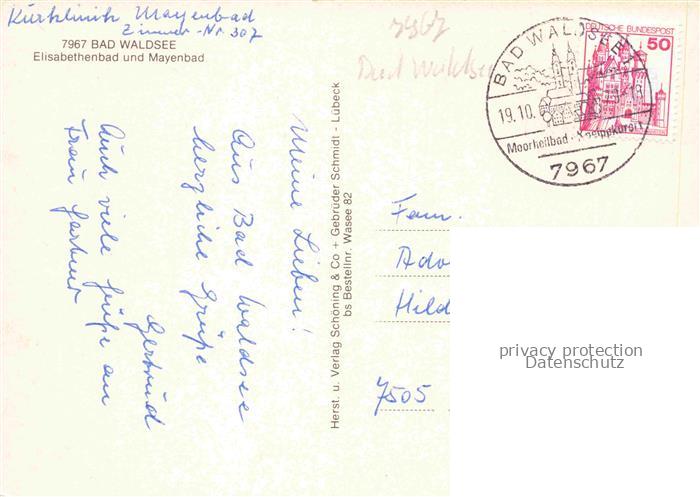 Kurklinik Mayenbad
Zimmer-Nr. 307
7967 BAD WALDSEE
Elisabethenbad und Mayenbad
7967
Bad Waldsee
BAD WALDSEE 1
19.10.
Moorheilbad · Kneippkurort
7967
DEUTSCHE BUNDESPOST
50
Meine Lieben!
Aus Bad Waldsee
herzliche Grüße
Gertrud
Auch viele Grüße an
Frau
Herst. u. Verlag Schöning & Co + Gebrüder Schmidt - Lübeck
bs Bestellnr. Wasee 82
Fam.
Ado
Hild
7505
privacy protection
Datenschutz